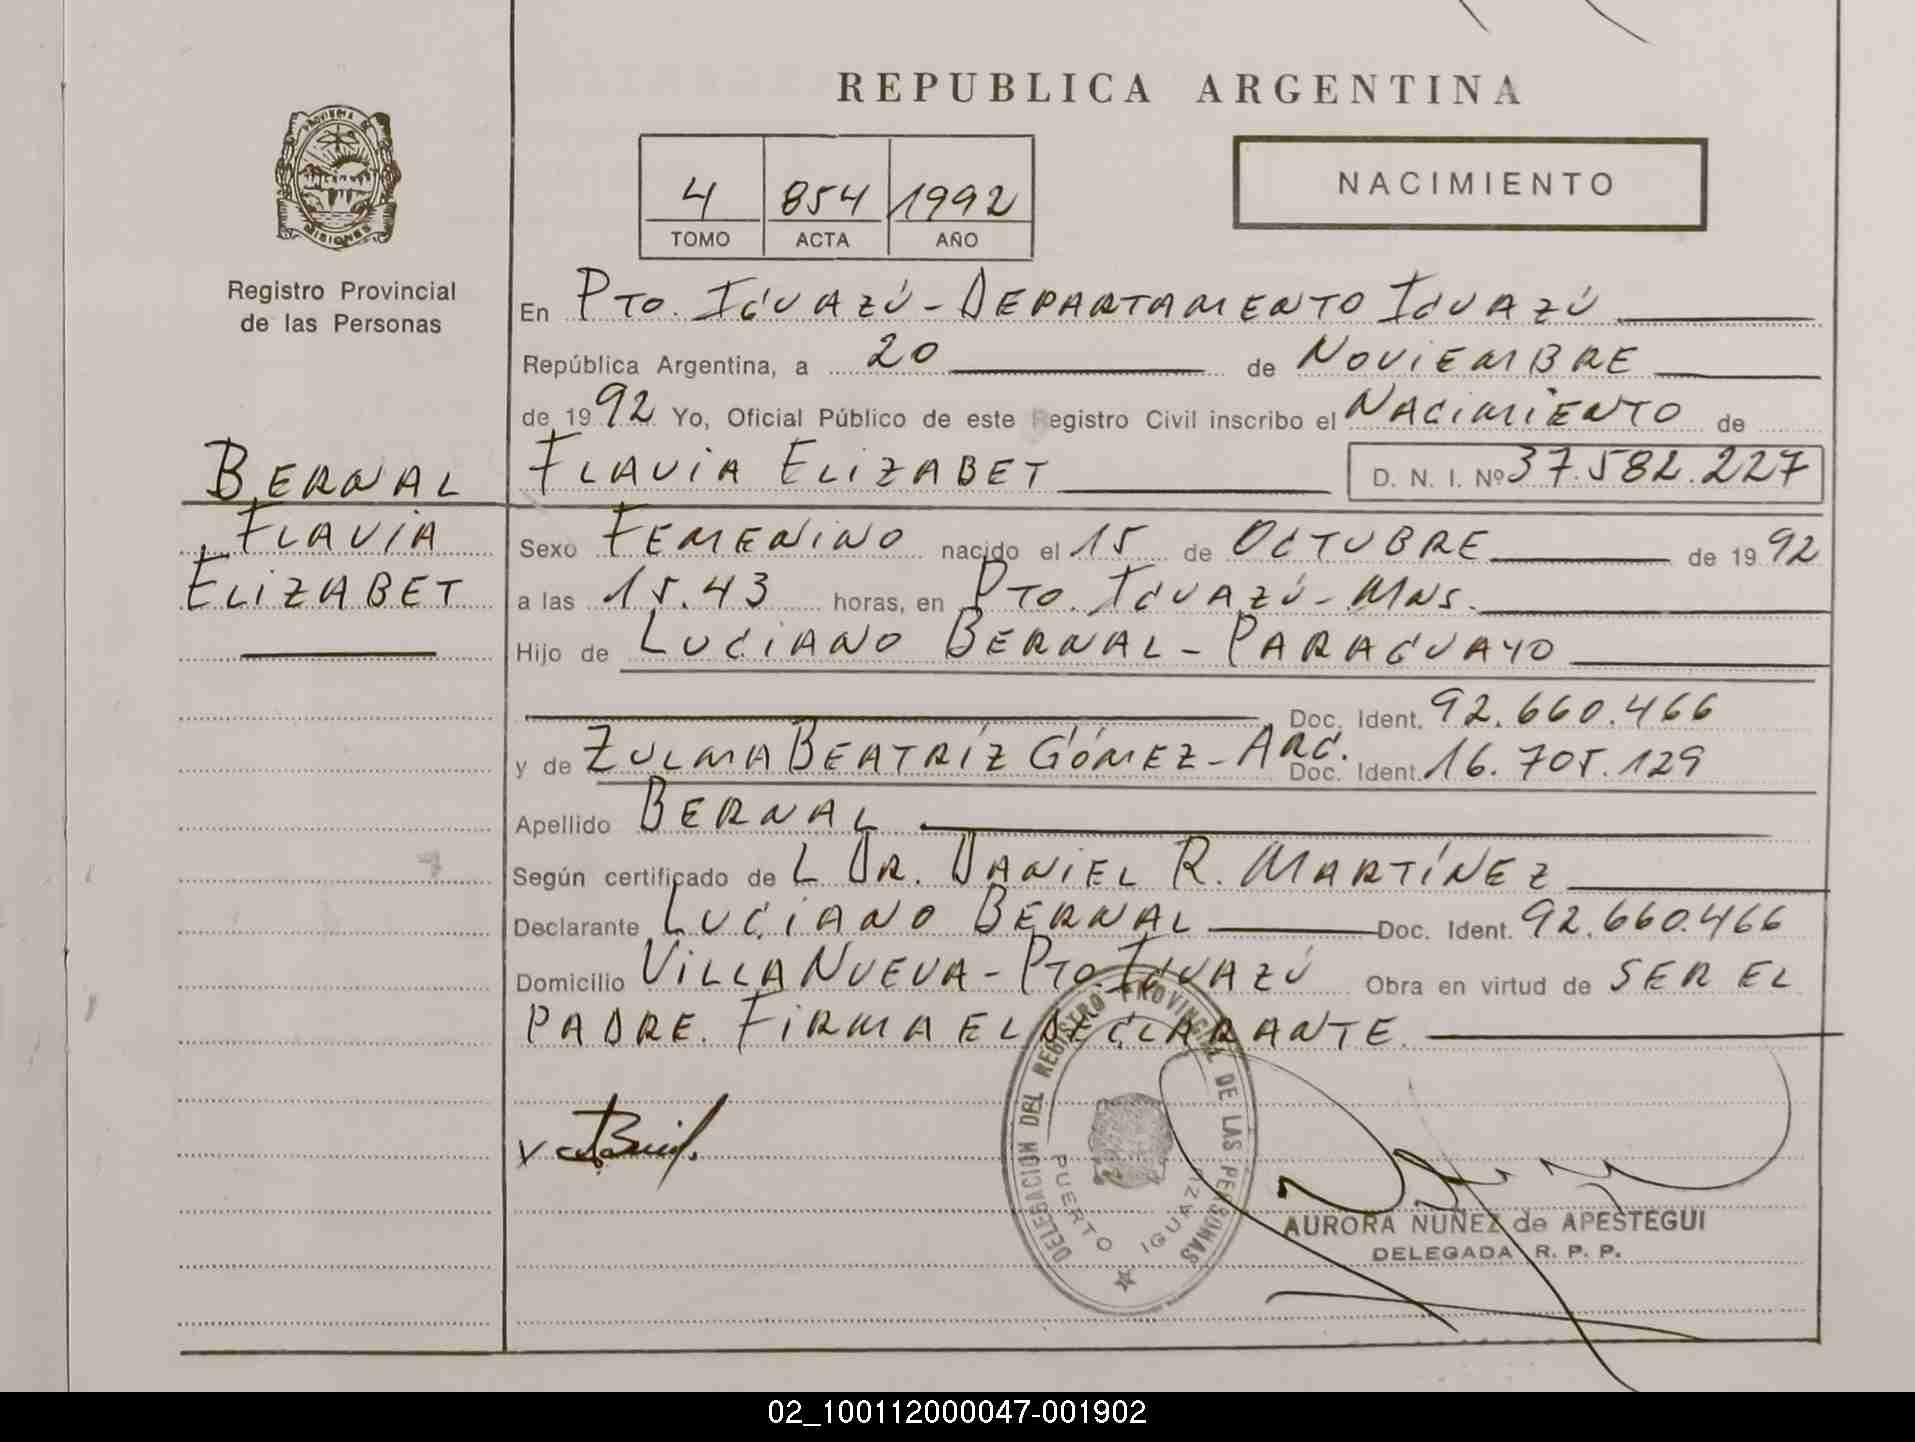 REPUBLICA ARGENTINA
PROVINCIA DE MISIONES
Registro Provincial
de las Personas
4 854 1992
TOMO ACTA AÑO
NACIMIENTO
En PTO. IGUAZÚ - DEPARTAMENTO IGUAZÚ
República Argentina, a 20 de NOVIEMBRE
de 1992 Yo, Oficial Público de este Registro Civil inscribo el NACIMIENTO de
BERNAL
FLAVIA
ELIZABET
FLAVIA ELIZABET D. N. I. Nº 37.582.227
Sexo FEMENINO nacido el 15 de OCTUBRE de 1992
a las 15.43 horas, en PTO. IGUAZÚ - MNS.
Hijo de LUCIANO BERNAL - PARAGUAYO
Doc. Ident. 92.660.466
y de ZULMA BEATRÍZ GÓMEZ - ARG. Doc. Ident. 16.705.129
Apellido BERNAL
Según certificado de L DR. DANIEL R. MARTÍNEZ
Declarante LUCIANO BERNAL Doc. Ident. 92.660.466
Domicilio VILLA NUEVA - PTO. IGUAZÚ Obra en virtud de SER EL
PADRE. FIRMA EL DECLARANTE.
DELEGACION DEL REGISTRO PROVINCIAL DE LAS PERSONAS
PUERTO IGUAZU
AURORA NUÑEZ de APESTEGUI
DELEGADA R. P. P.
02_100112000047-001902